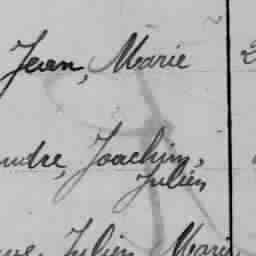 Jean, Marie
Joachim,
Julien
Julien Marie